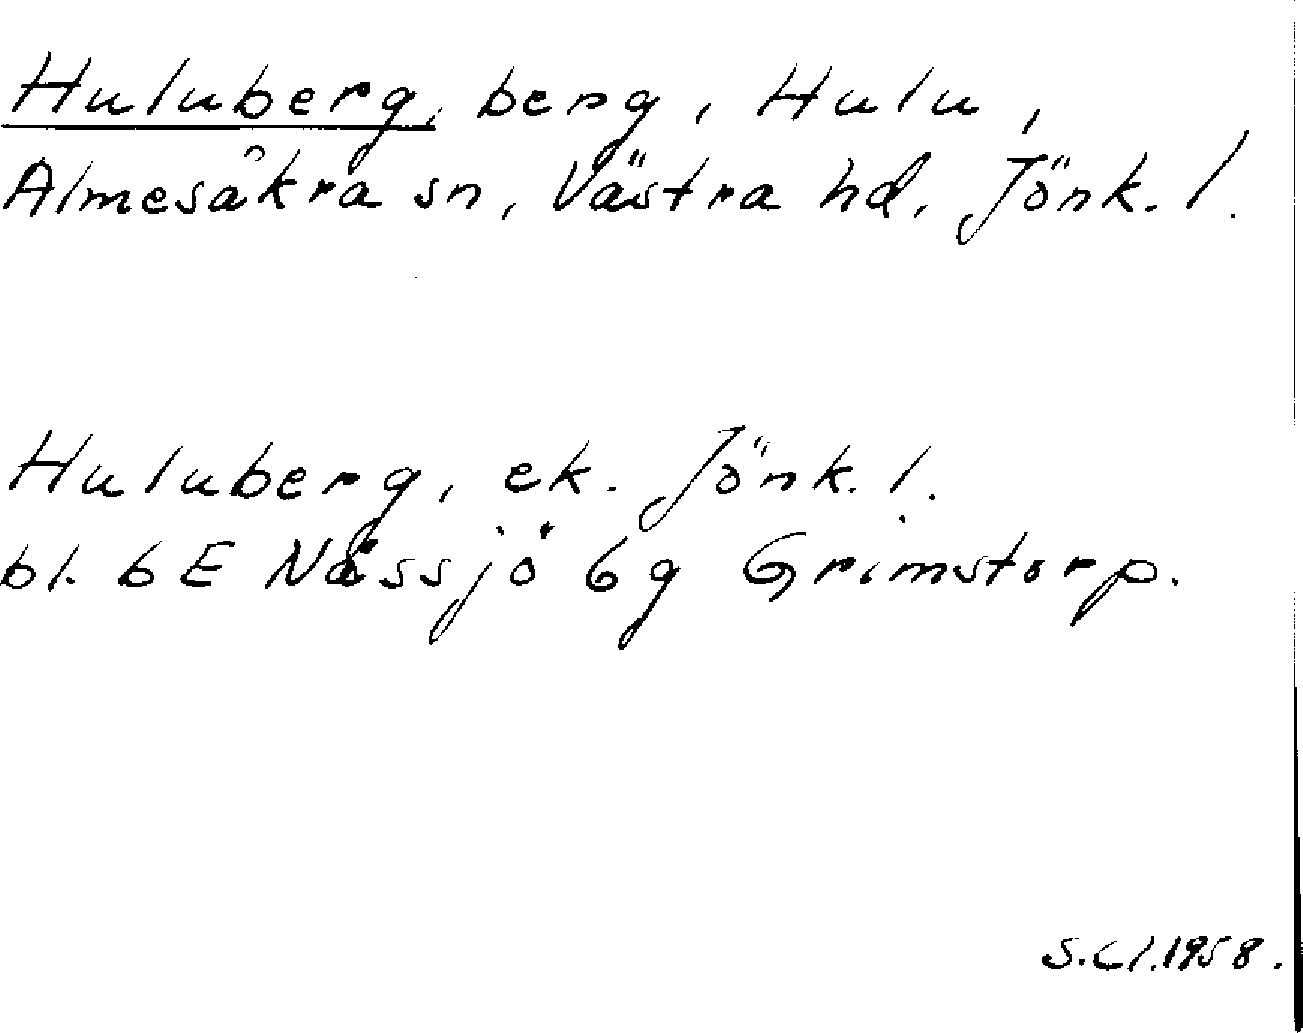 Huluberg, berg, Hulu,
Almesåkra sn, Västra hd, Jönk. l.
Huluberg, ek. Jönk. l.
bl. 6E Nässjö 6g Grimstorp.
S.Cl.1958.